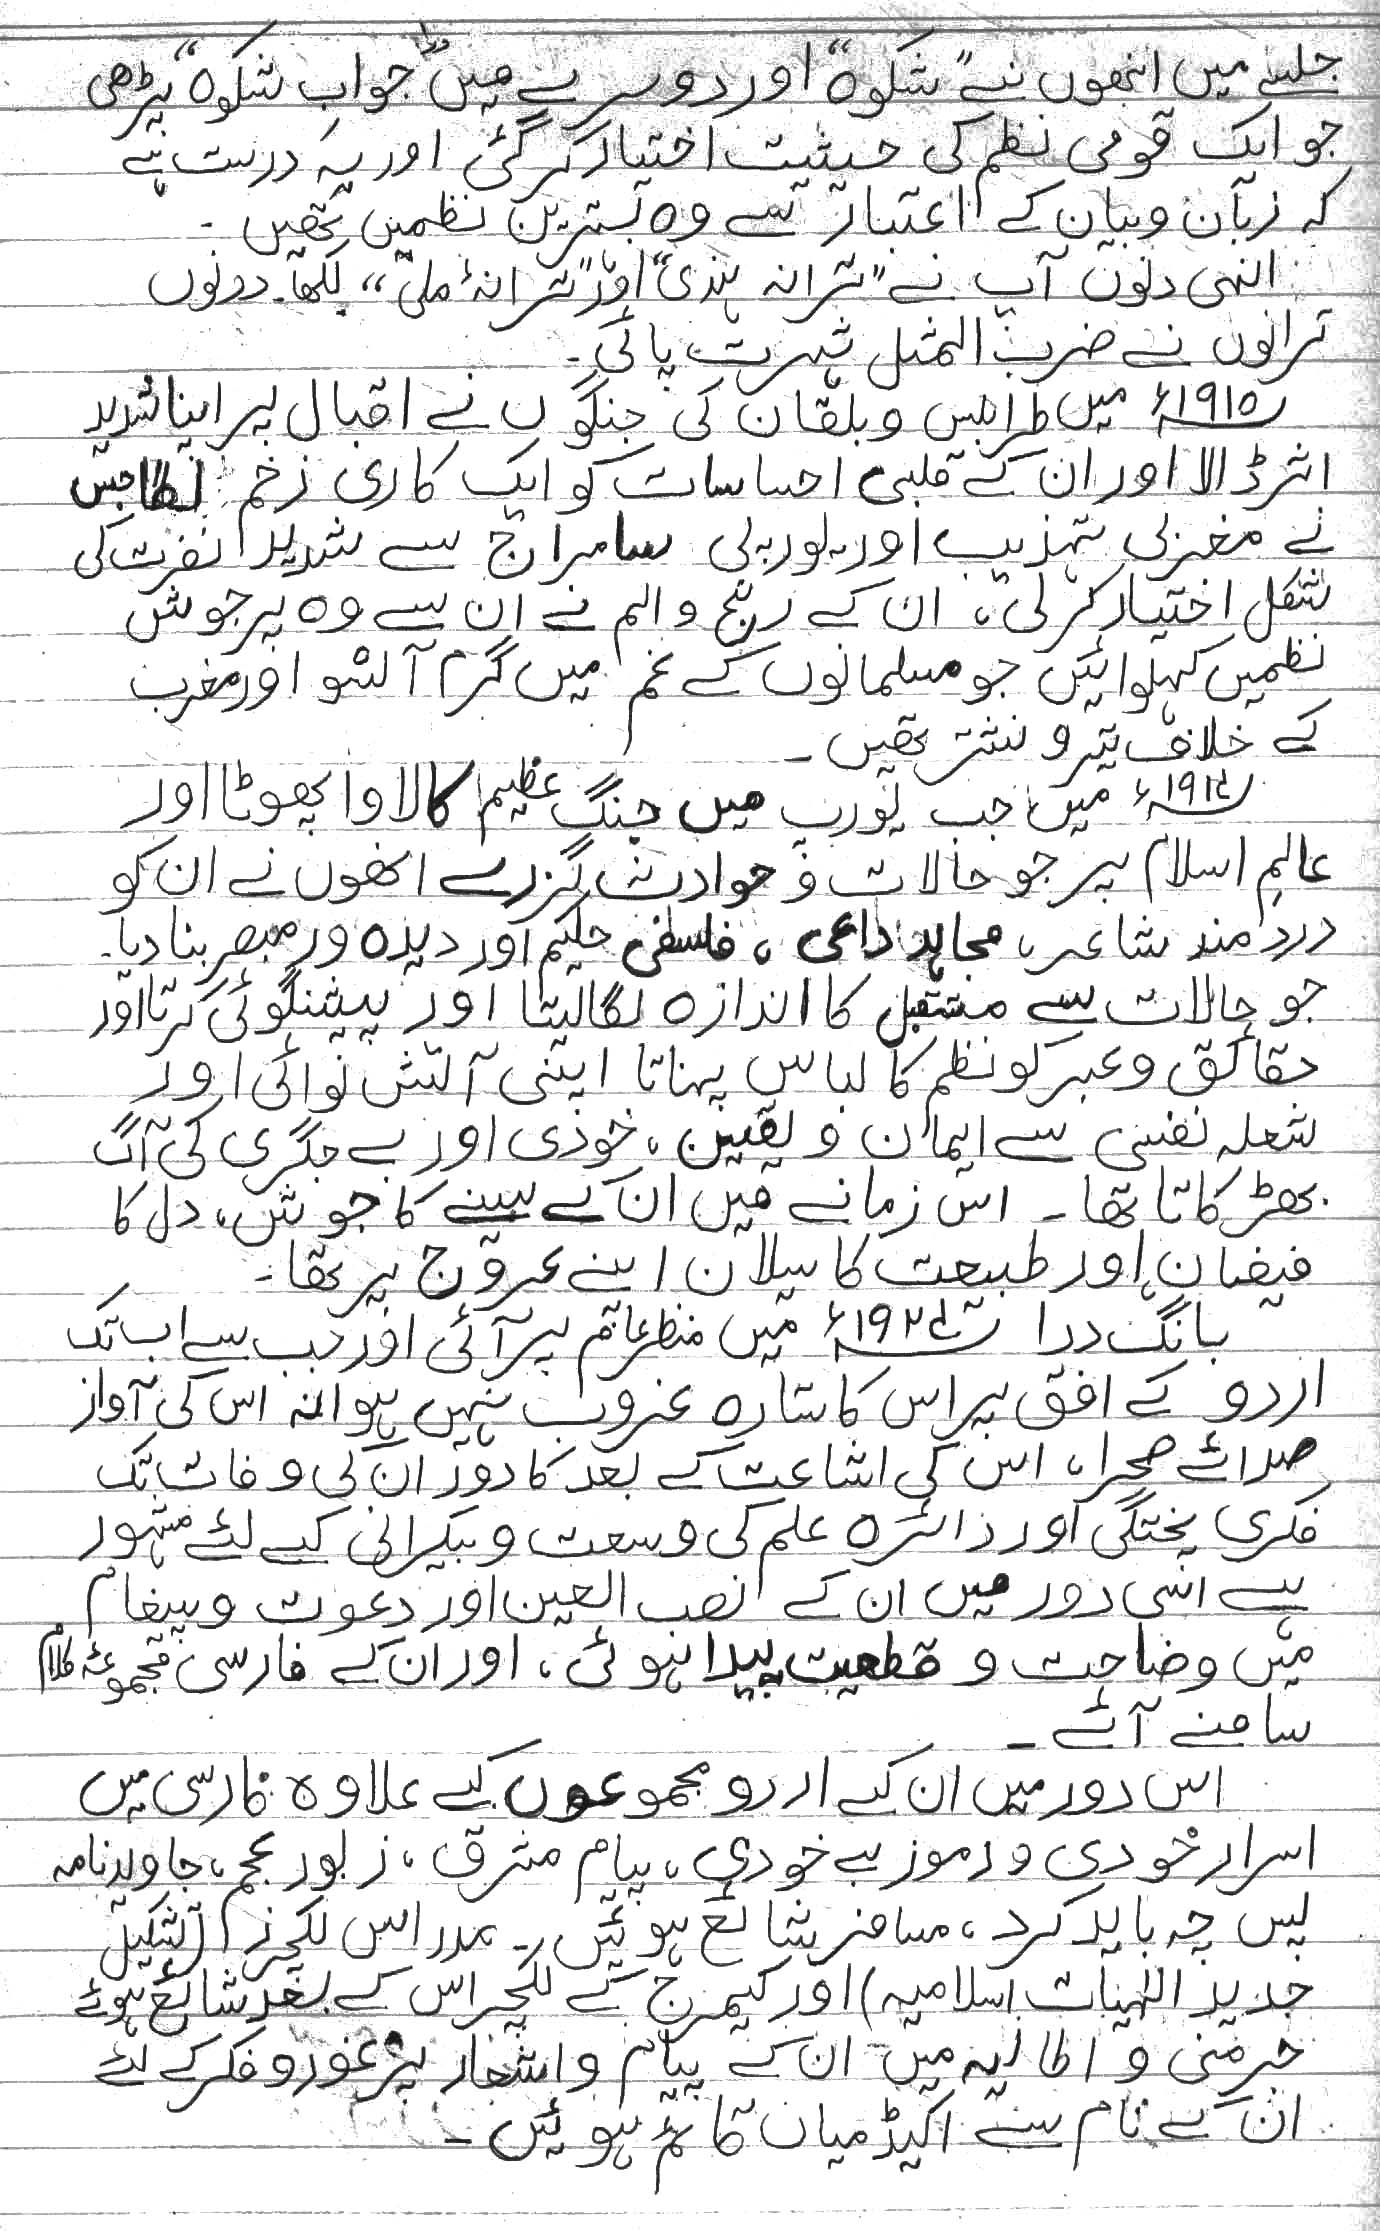 جلسے میں انھوں نے "شکوہ" اور دوسرے میں "جواب شکوہ" پڑھی
جو ایک قومی نظم کی حیثیت اختیار کر گئی اور یہ درست ہے
کہ زبان و بیان کے اعتبار سے وہ بہترین نظمیں تھیں ۔
انہی دنوں آپ نے "ترانہ ہندی" اور "ترانۂ ملی" لکھا۔ دونوں
ترانوں نے ضرب المثل شہرت پائی ۔
۱۹۱۵ء میں طرابلس و بلقان کی جنگوں نے اقبال پر اپنا شدید
اثر ڈالا اور ان کے قلبی احساسات کو ایک کاری زخم لگا جس
نے مغربی تہذیب اور یورپی سامراج سے شدید نفرت کی
شکل اختیار کر لی، ان کے رنج و الم نے ان سے وہ پرجوش
نظمیں کہلوائیں جو مسلمانوں کے غم میں گرم آنسو اور مغرب
کے خلاف تیر و نشتر تھیں ۔
۱۹۱۴ء میں جب یورپ میں جنگ عظیم کا لاوا پھوٹا اور
عالم اسلام پر جو حالات و حوادث گزرے انھوں نے ان کو
درد مند شاعر، مجاہد داعی، فلسفی حکیم اور دیدہ ور مبصر بنا دیا۔
جو حالات سے مستقبل کا اندازہ لگا لیتا اور پیشنگوئی کرتا اور
حقائق و عبر کو نظم کا لباس پہناتا اپنی آتش نوائی اور
شعلہ نفسی سے ایمان و یقین، خودی اور بے جگری کی آگ
بھڑکاتا تھا ۔ اس زمانے میں ان کے سینے کا جوش، دل کا
فیضان اور طبیعت کا سیلان اپنے عروج پر تھا۔
بانگ درا ۱۹۲۴ء میں منظر عام پر آئی اور جب سے اب تک
اردو کے افق پر اس کا ستارہ غروب نہیں ہوا نہ اس کی آواز
صدائے صحرا، اس کی اشاعت کے بعد کا دور ان کی وفات تک
فکری پختگی اور دائرہ علم کی وسعت و بیکرانی کے لئے مشہور
ہے اسی دور میں ان کے نصب العین اور دعوت و پیغام
میں وضاحت و قطعیت پیدا ہوئی، اور ان کے فارسی مجموعۂ کلام
سامنے آئے ۔
اس دور میں ان کے اردو مجموعوں کے علاوہ فارسی میں
اسرار خودی و رموز بے خودی، پیام مشرق، زبور عجم، جاوید نامہ
پس چہ باید کرد، مسافر شائع ہوئیں ۔ مدراس لکچرز (تشکیل
جدید الٰہیات اسلامیہ) اور کیمرج کے لکچر اس کے بعد شائع ہوئے
جرمنی و اطالیہ میں ان کے پیام و اشعار پر غور و فکر کے لئے
ان کے نام سے اکیڈمیاں قائم ہوئیں ۔